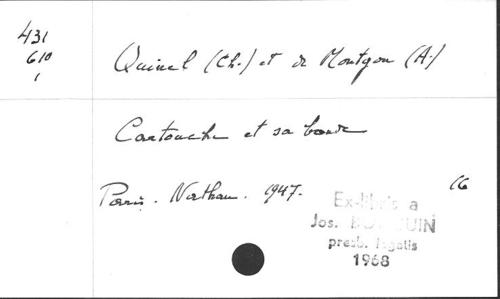 431
610
1
Quinel (Ch.) et de Montgon (A.)
Cartouche et sa bande
Paris. Nathan. 1947.
16
Ex-libris a
Jos. UIN
presb. legalis
1968